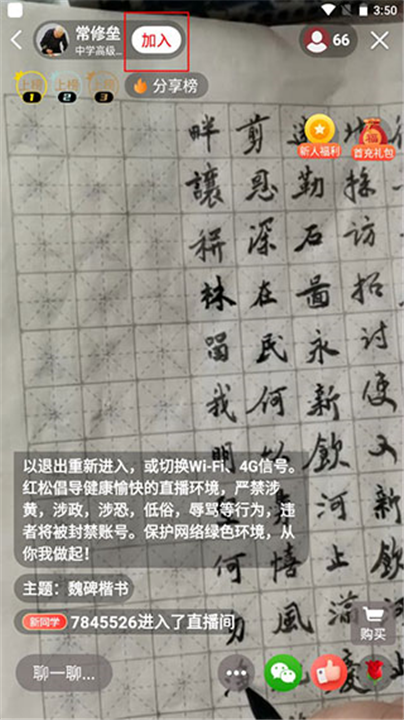 3:50
常修垒
中学高级...
加入
66
上榜 1
上榜 2
上榜 3
分享榜
新人福利
首充礼包
访招讨使又新飲
勤石圖永新飲河止瀟度
剪恩深在民何
風
畔讓耕林留我明
何
以退出重新进入，或切换Wi-Fi、4G信号。
红松倡导健康愉快的直播环境，严禁涉
黄，涉政，涉恐，低俗，辱骂等行为，违
者将被封禁账号。保护网络绿色环境，从
你我做起！
主题：魏碑楷书
新同学 7845526进入了直播间
购买
聊一聊...